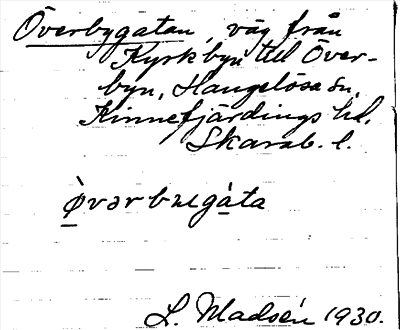 Överbygatan, väg från
Kyrkbyn till Över-
byn, Hangelösa sn,
Kinnefjärdings hd.
Skarab. l.
L. Madsén 1930.